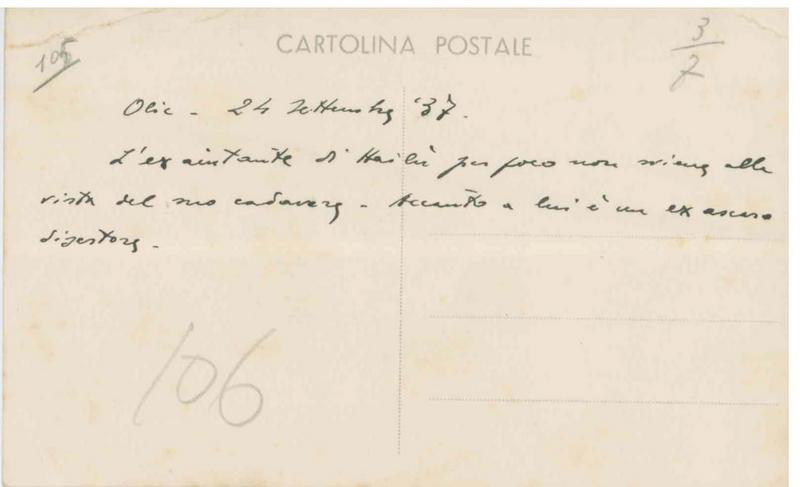 CARTOLINA POSTALE
105
3
7
Olic - 24 Settembre '37.
L'ex aiutante di Hailù per poco non sviene alla
vista del suo cadavere - Accanto a lui è un ex ascaro
disertore -
106